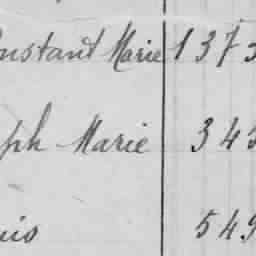 onstant Marie 1373
ph Marie 343
uis 549